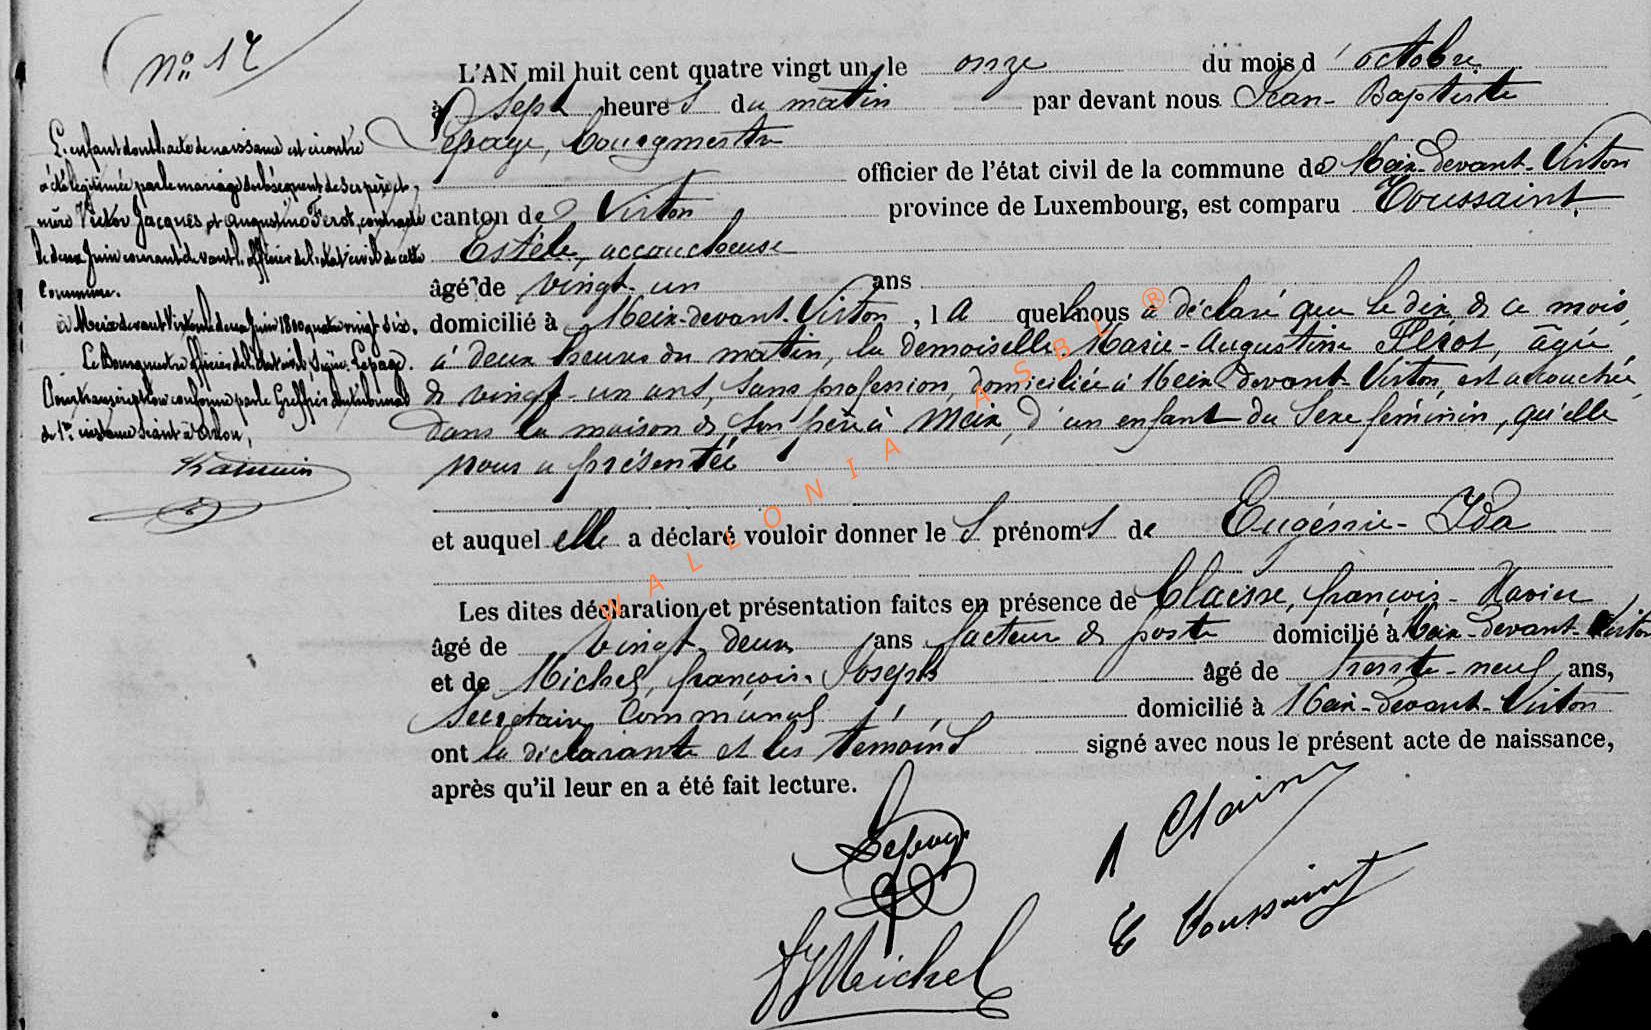 N° 17
L'enfant dont l'acte de naissance est ci contre
a été légitimée par le mariage subséquent de ses père et
mère Victor Jacques et Augustine Férot, contracté
le deux Juin courant devant l'officier de l'état civil de cette
Commune.
à Meix devant Virton le deux Juin 1800 quatre vingt six.
Le Bourgmestre officier de l'état civil Signé: Lepage.
Pour transcription conforme par le Greffier du tribunal
de 1re instance Séant à Arlon,
L'AN mil huit cent quatre vingt un, le onze du mois d'octobre
à sept heures du matin par devant nous Jean-Baptiste
Lepage, bourgmestre
officier de l'état civil de la commune de Meix-devant-Virton
canton de Virton province de Luxembourg, est comparu Toussaint,
Estèle, accoucheuse
âgé de vingt-un ans
domicilié à Meix-devant-Virton, la quel nous a déclaré que le dix de ce mois,
à deux heures du matin, la demoiselle Marie-Augustine Férot, âgée
de vingt-un ans, sans profession, domiciliée à Meix devant-Virton, est accouchée
dans la maison de son père à Meix, d'un enfant du sexe féminin, qu'elle
nous a présenté
et auquel elle a déclaré vouloir donner les prénoms de Eugénie-Ida
Les dites déclaration et présentation faites en présence de Claisse, françois-Xavier
âgé de vingt deux ans facteur de poste domicilié à Meix-devant-Virton
et de Michel, françois-Joseph âgé de trente-neuf ans,
Secrétaire Communal domicilié à Meix-devant-Virton
ont la déclarante et les témoins signé avec nous le présent acte de naissance,
après qu'il leur en a été fait lecture.
Lepage
E Toussaint
FJMichel
WALLONIA ASBL ®